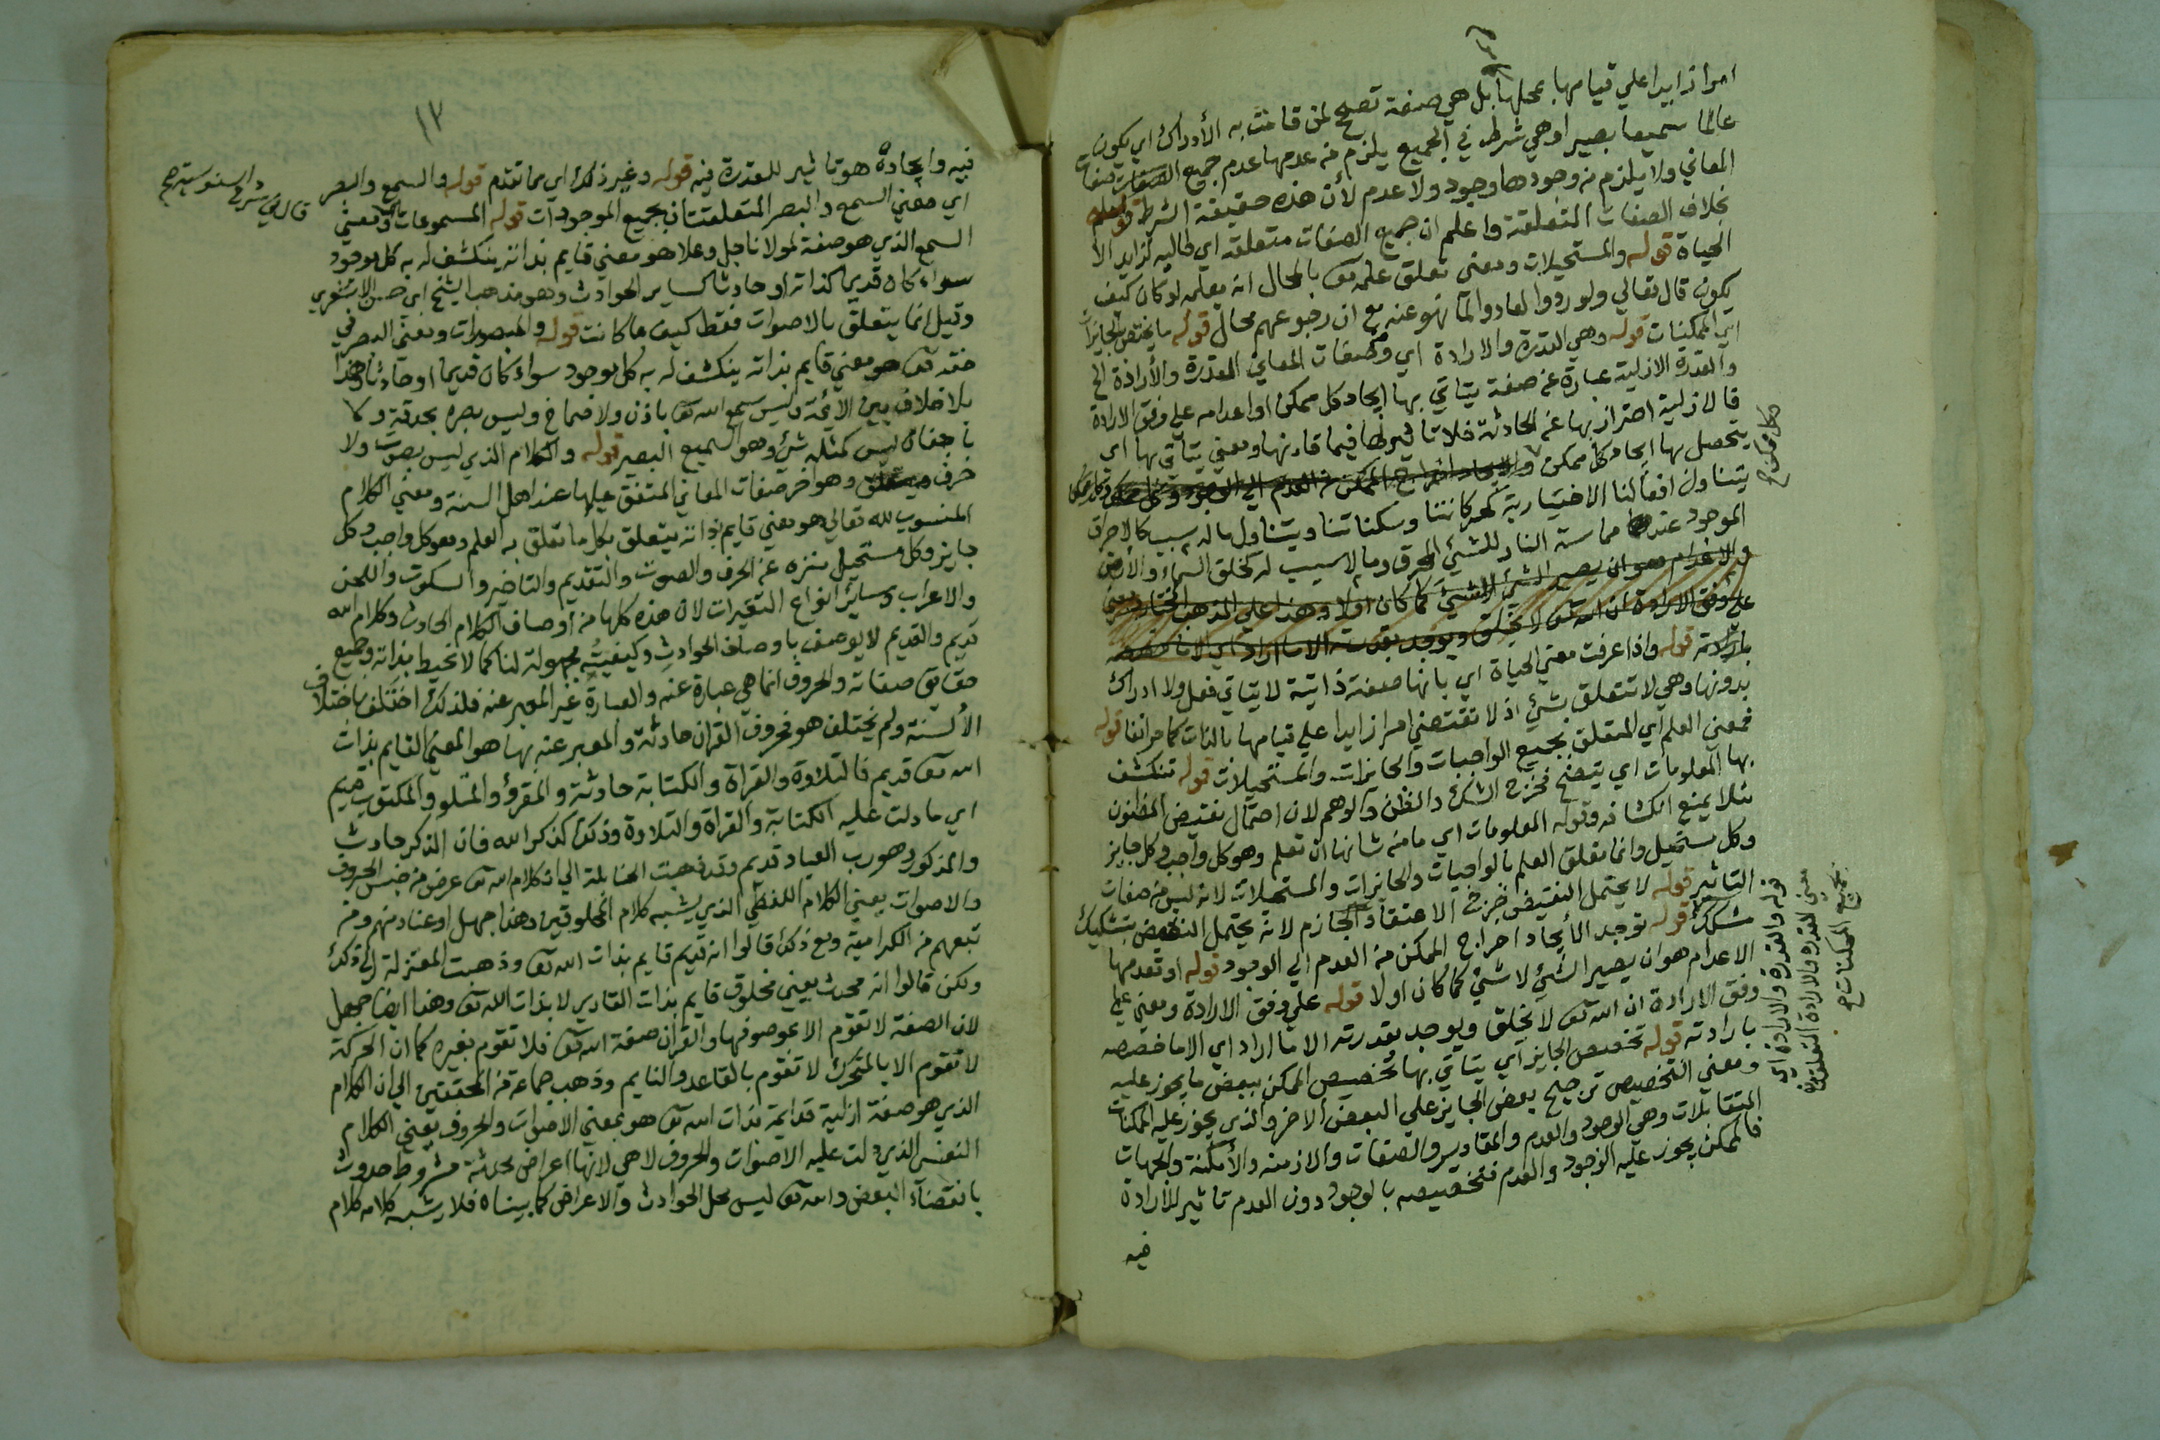 امرا زايدا علي قيامها بمحلها بل هي صفة تصح لمن قامت به الأدراك اي يكون
عالما سميعا بصيرا وهي شرط في الجميع يلزم من عدمها عدم جميع صفات
المعاني ولا يلزم من وجودها وجود ولا عدم لأن هذه حقيقة الشرط قوله
بخلاف الصفات المتعلقة واعلم ان جميع الصفات متعلقة اي طالبة لزايد الا
الحياة قوله والمستحيلات ومعنى تعلق علمه تع بالمحال انه يعلمه لو كان كيف
يكون قال تعالي ولو ردوا لعادوا لما نهوا عنه مع ان رجوعهم محال قوله ما يختص الجايزات
اي الممكنات قوله وهي القدرة والارادة اي وصفات المعاني القدرة والأرادة الخ
والقدرة الازلية عبارة عن صفة يتاتي بها ايجاد كل ممكن او اعدامه علي وفق الارادة
فالازلية احتراز بها عن الحادثة فلا تاثير لها فيما قارنها ومعني يتاتي بها اي
يتحصل بها ايجاد كل ممكن والايجاد اخراج الممكن من العدم الي الوجود وكل ممكن
يتناول افعالنا الاختيارية كحركاتنا وسكناتنا ويتناول ماله سبب كالاحراق
الموجود عند مماسة النار للشيئ المحرق وما لا سبب له كخلق السماء والأرض
والاعدام هو ان يصير الشيئ لا شيئ كما كان اولا وهذا علي المذهب المختار ومعني
علي وفق الارادة ان الله تع لا يخلق ويوجد بقدرته الا ما اراد اي الا ما خصصه
بارادته قوله واذا عرفت معني الحياة اي بانها صفة ذاتية لا يتاتي فعل ولا ادراك
بدونها وهي لا تتعلق بشيئ اذ لا تقتضي امرا زايدا علي قيامها بالذات كما مر انفا قوله
فمعني العلم اي المتعلق بجميع الواجبات والجايزات والمستحيلات قوله تنكشف
بها المعلومات اي يتضح فخرج الشك والظن والوهم لان احتمال نقيض المظنون
مثلا يمنع انكشافه وقوله المعلومات اي ما من شانها ان تعلم وهو كل واجب وكل جايز
وكل مستحيل وانما تعلق العلم بالواجبات والجايزات والمستحيلات لانه ليس من صفات
التاثير قوله لا يحتمل النقيض خرج الاعتقاد الجازم لانه يحتمل النقيض بتشكيك
مشكك قوله توجد الأيجاد اخراج الممكن من العدم الي الوجود قوله او تعدمها
الاعدام هو ان يصير الشيئ لا شيئ كما كان اولا قوله علي وفق الارادة ومعني علي
وفق الارادة ان الله تع لا يخلق ويوجد بقدرته الا ما اراد اي الا ما خصصه
بارادته قوله تخصيص الجايز اي يتاتي بها تخصيص الممكن ببعض ما يجوز عليه
ومعني التخصيص ترجيح بعض الجايز علي البعض الاخر والذي يجوز عليه الممكنات
المتقابلات وهي الوجود والعدم والمقادير والصفات والازمنة والأمكنة والجهات
فالممكن يجوز عليه الوجود والعدم فتخصيصه بالوجود دون العدم تاثير للأرادة
فيه
كل ممكن صح
قوله والقدرة والارادة اي
معني القدرة والارادة المتعلقة
بجميع الممكنات صح
١٣
فيه وايجاده هو تاثير للقدرة فيه قوله وغير ذلك اي مما تقدم قوله والسمع والبصر
اي معني السمع والبصر المتعلقتان بجميع الموجودات قوله المسموعات ومعني
السمع الذي هو صفة لمولانا جل وعلا هو معني قايم بذاته ينكشف له به كل موجود
سواء كان قديما كذاته او حادثا كساير الحوادث وهو مذهب الشيخ ابي حسن الاشعري
وقيل انما يتعلق بالاصوات فقط كيف ما كانت قوله والمبصرات ومعني البصر في
حقه تع هو معني قايم بذاته ينكشف له به كل موجود سواء كان قديما او حادثا وهذا
بلا خلاف بين الأيمة وليس سمع الله تع باذن ولا صماخ وليس بصره بحدقة ولا
باجفان ليس كمثله شيئ وهو السميع البصير قوله والكلام الذي ليس بصوت ولا
حرف وهو اخر صفات المعاني المتفق عليها عند اهل السنة ومعني الكلام
المنسوب لله تعالي هو معني قايم بذاته يتعلق بكل ما تعلق به العلم وهو كل واجب وكل
جايز وكل مستحيل منزه عن الحرف والصوت والتقديم والتاخر والسكوت واللحن
والاعراب وساير انواع التغيرات لان هذه كلها من أوصاف الكلام الحادث وكلام الله
قديم والقديم لا يوصف باوصاف الحوادث وكيفيته مجهولة لنا كما لا نحيط بذاته وجميع
حقايق صفاته والحروف انما هي عبارة عنه والعبارة غير المعبر عنه فلذلك اختلف باختلاف
الألسنة ولم يختلف هو فحروف القران حادثة والمعبر عنه بها هو المعني القايم بذات
الله تع قديم فالتلاوة والقرآة والكتابة حادثة والمقرؤ والمتلو والمكتوب قديم
اي ما دلت عليه الكتابة والقرآة والتلاوة وذلك كذكر الله فان الذكر حادث
والمذكور وهو رب العباد قديم وقد ذهبت الحنابلة الي ان كلام الله تع عرض من جنس الحروف
والاصوات يعني الكلام اللفظي الذي يشبه كلام المخلوقين وهذا جهل او عناد منهم ومن
تبعهم من الكرامية ومع ذلك قالوا انه قديم قايم بذات الله تع وذهبت المعتزلة الي ذلك
ولكن قالوا انه محدث يعني مخلوق قايم بذات القادير لا بذات الله تع وهذا ايضا جهل
لان الصفة لا تقوم الا بموصوفها والقران صفة الله تع فلا تقوم بغيره كما ان الحركة
لا تقوم الا بالمتحرك لا تقوم بالقاعد والنايم وذهب جماعة من المحققين الي ان الكلام
الذي هو صفة ازلية قدايمة بذات الله تع هو بمعني الاصوات والحروف يعني الكلام
النفس الذي دلت عليه الاصوات والحروف لا هي لانها اعراض محدثة مشروط حدوث
بانقضاء البعض والله تع ليس محل الحوادث والاعراض كما بيناه فلا يشبه كلامه كلام
قال في شرح